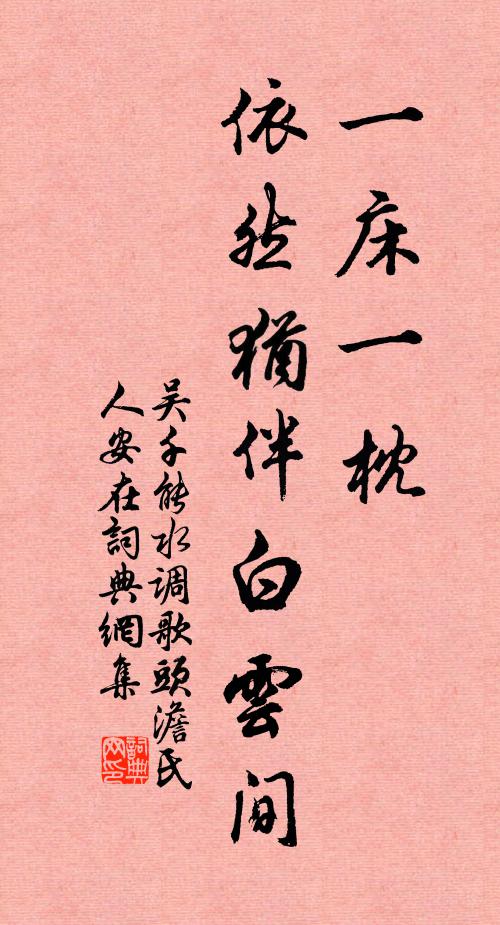 一床一枕
依然猶伴白雲间
吴千能水调歌頭澹氏
人安在詞典網集
詞典
网印